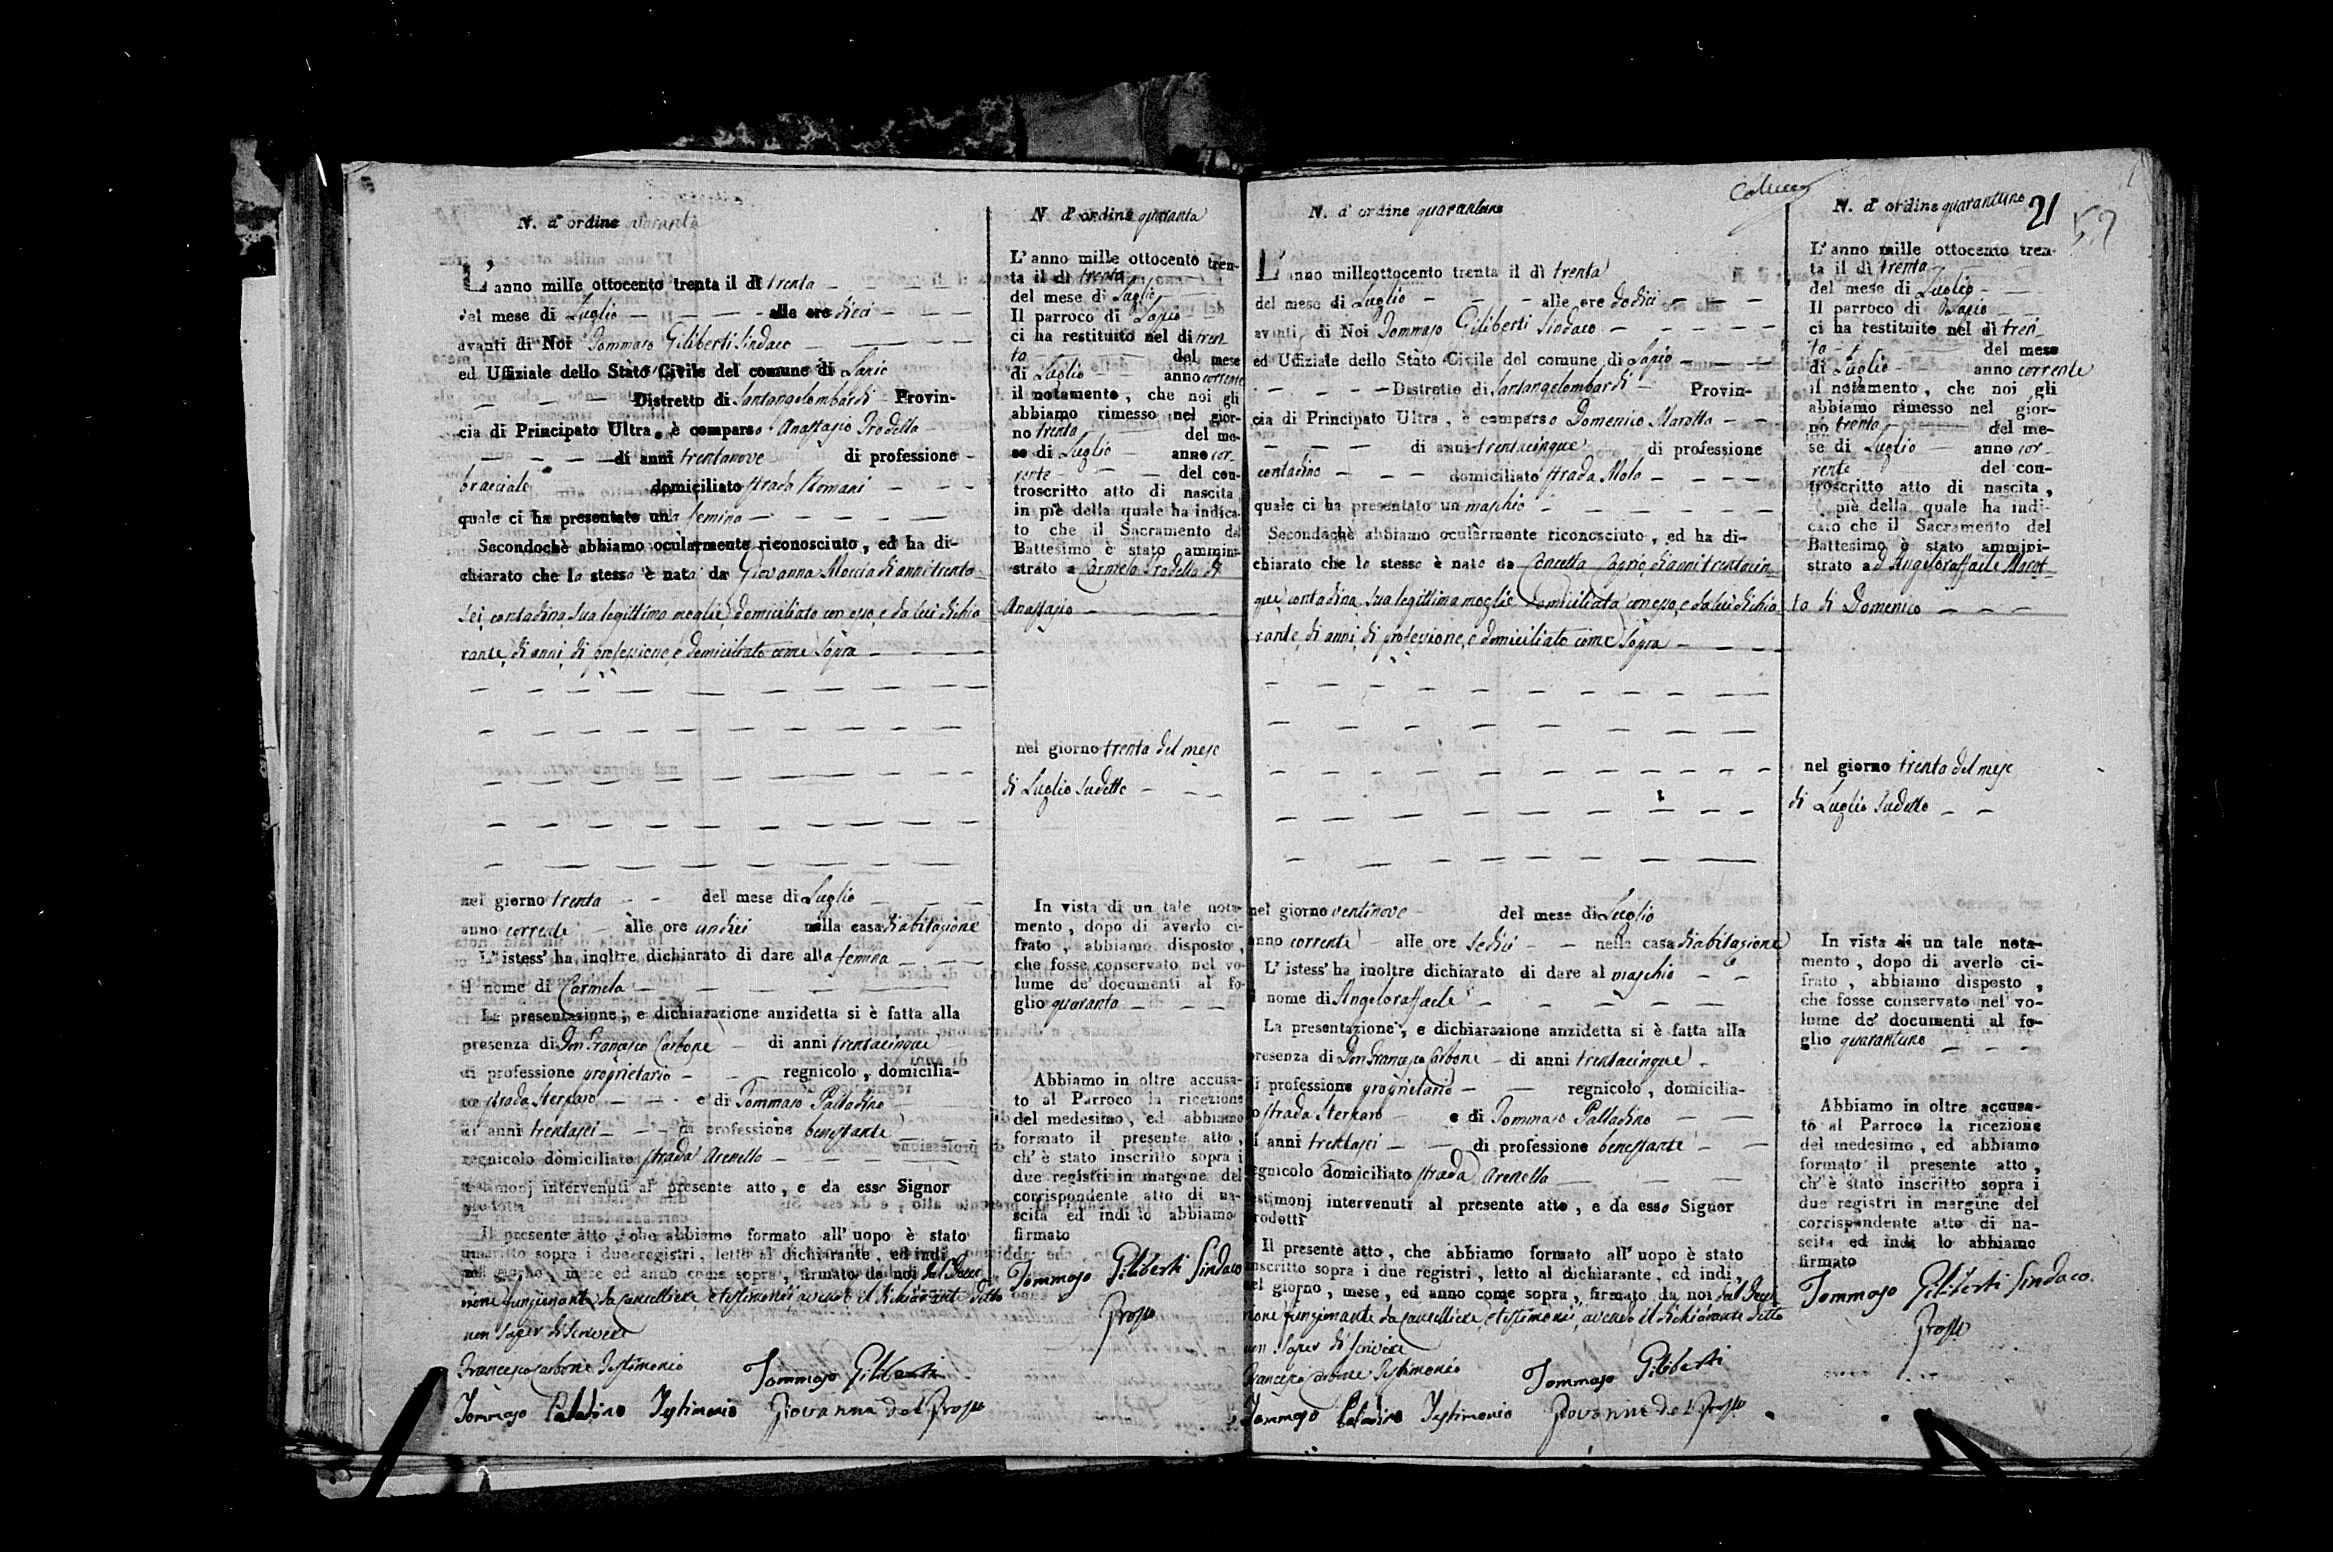 N. d' ordine quaranta
L' anno mille ottocento trenta il dì trenta
del mese di Luglio alle ore dieci
avanti di Noi Tommaso Giliberti Sindaco
ed Uffiziale dello Stàto Civile del comune di Lapio
Distretto di Santangelombardi Provin-
cia di Principato Ultra, è comparso Anastasio Iradella
di anni trentanove di professione
bracciale domiciliato strada Romani
quale ci ha presentato una femina
Secondochè abbiamo ocularmente riconosciuto, ed ha di-
chiarato che la stessa è nata da Giovanna Moccia di anni trenta-
sei, contadina, sua legittima moglie, domiciliata con esso, e da lui dichia-
rante, di anni, di professione, e domiciliato come sopra
nel giorno trenta del mese di Luglio
anno corrente alle ore undici nella casa di abitazione
L' istess' ha inoltre dichiarato di dare alla femina
il nome di Carmela
La presentazione, e dichiarazione anzidetta si è fatta alla
presenza di Don Francesco Carbone di anni trentacinque
di professione proprietario regnicolo, domicilia-
to strada Sterparo e di Tommaso Palladino
di anni trentasei di professione benestante
regnicolo domiciliato strada Arenella
testimonj intervenuti al presente atto, e da esso Signor
prodotti
Il presente atto, che abbiamo formato all' uopo è stato
inscritto sopra i due registri, letto al dichiarante, ed indi
nel giorno, mese ed anno come sopra, firmato da noi dal Decu
rione funzionante da Cancelliere, e testimonii avendo il dichiarante detto
non saper di scrivere
Francesco Carbone Testimonio Tommaso Giliberti
Tommaso Paladino Testimonio Giovanni del Prosto
N. d' ordine quaranta
L' anno mille ottocento tren-
ta il dì trenta
del mese di Luglio
Il parroco di Lapio
ci ha restituito nel dì tren
ta del mese
di Luglio anno corrente
il notamento, che noi gli
abbiamo rimesso nel gior-
no trenta del me-
se di Luglio anno cor-
rente del con-
troscritto atto di nascita
in piè della quale ha indica-
to che il Sacramento del
Battesimo è stato ammini-
strato a Carmela Iradella di
Anastasio
nel giorno trenta del mese
di Luglio sudetto
In vista di un tale nota-
mento, dopo di averlo ci-
frato, abbiamo disposto,
che fosse conservato nel vo-
lume de' documenti al fo-
glio quaranta
Abbiamo in oltre accusa-
to al Parroco la ricezione
del medesimo, ed abbiamo
formato il presente atto,
ch' è stato inscritto sopra i
due registri in margine del
corrispondente atto di na-
scita ed indi lo abbiamo
firmato
Tommaso Giliberti Sindaco
N. d' ordine quarantuno
L' anno milleottocento trenta il dì trenta
del mese di Luglio alle ore dodici
avanti di Noi Tommaso Giliberti Sindaco
ed Uffiziale dello Stàto Civile del comune di Lapio
Distretto di Santangelombardi Provin-
cia di Principato Ultra, è comparso Domenico Marotta
di anni trentacinque di professione
contadino domiciliato strada Molo
quale ci ha presentato un maschio
Secondochè abbiamo ocularmente riconosciuto, ed ha di-
chiarato che lo stesso è nato da Concetta Caprio, di anni trentacin-
que, contadina, sua legittima moglie domiciliata con esso, e da lui dichia-
rante, di anni, di professione, e domiciliato come sopra
nel giorno ventinove del mese di Luglio
anno corrente alle ore sedici nella casa di abitazione
L' istess' ha inoltre dichiarato di dare al maschio
il nome di Angeloraffaele
La presentazione, e dichiarazione anzidetta si è fatta alla
presenza di Don Francesco Carbone di anni trentacinque
di professione proprietario regnicolo, domicilia-
to strada Sterparo e di Tommaso Palladino
di anni trentasei di professione benestante
regnicolo domiciliato strada Arenella
testimonj intervenuti al presente atto, e da esso Signor
prodotti
Il presente atto, che abbiamo formato all' uopo è stato
inscritto sopra i due registri, letto al dichiarante, ed indi
nel giorno, mese, ed anno come sopra, firmato da noi dal Decu
rione funzionante da Cancelliere, e testimonii, avendo il dichiarante detto
non saper di scrivere
Francesco Carbone Testimonio Tommaso Giliberti
Tommaso Paladino Testimonio Giovanni del Prosto
N. d' ordine quarantuno 21
L' anno mille ottocento tren-
ta il dì trenta
del mese di Luglio
Il parroco di Lapio
ci ha restituito nel dì tren
ta del mese
di Luglio anno corrente
il notamento, che noi gli
abbiamo rimesso nel gior-
no trenta del me-
se di Luglio anno cor-
rente del con-
troscritto atto di nascita,
piè della quale ha indi-
cato che il Sacramento del
Battesimo è stato ammini-
strato ad Angeloraffaele Marot-
ta di Domenico
nel giorno trenta del mese
di Luglio sudetto
In vista di un tale nota-
mento, dopo di averlo ci-
frato, abbiamo disposto,
che fosse conservato nel vo-
lume de' documenti al fo-
glio quarantuno
Abbiamo in oltre accusa-
to al Parroco la ricezione
del medesimo, ed abbiamo
formato il presente atto,
ch' è stato inscritto sopra i
due registri in margine del
corrispondente atto di na-
scita ed indi lo abbiamo
firmato
Tommaso Giliberti Sindaco